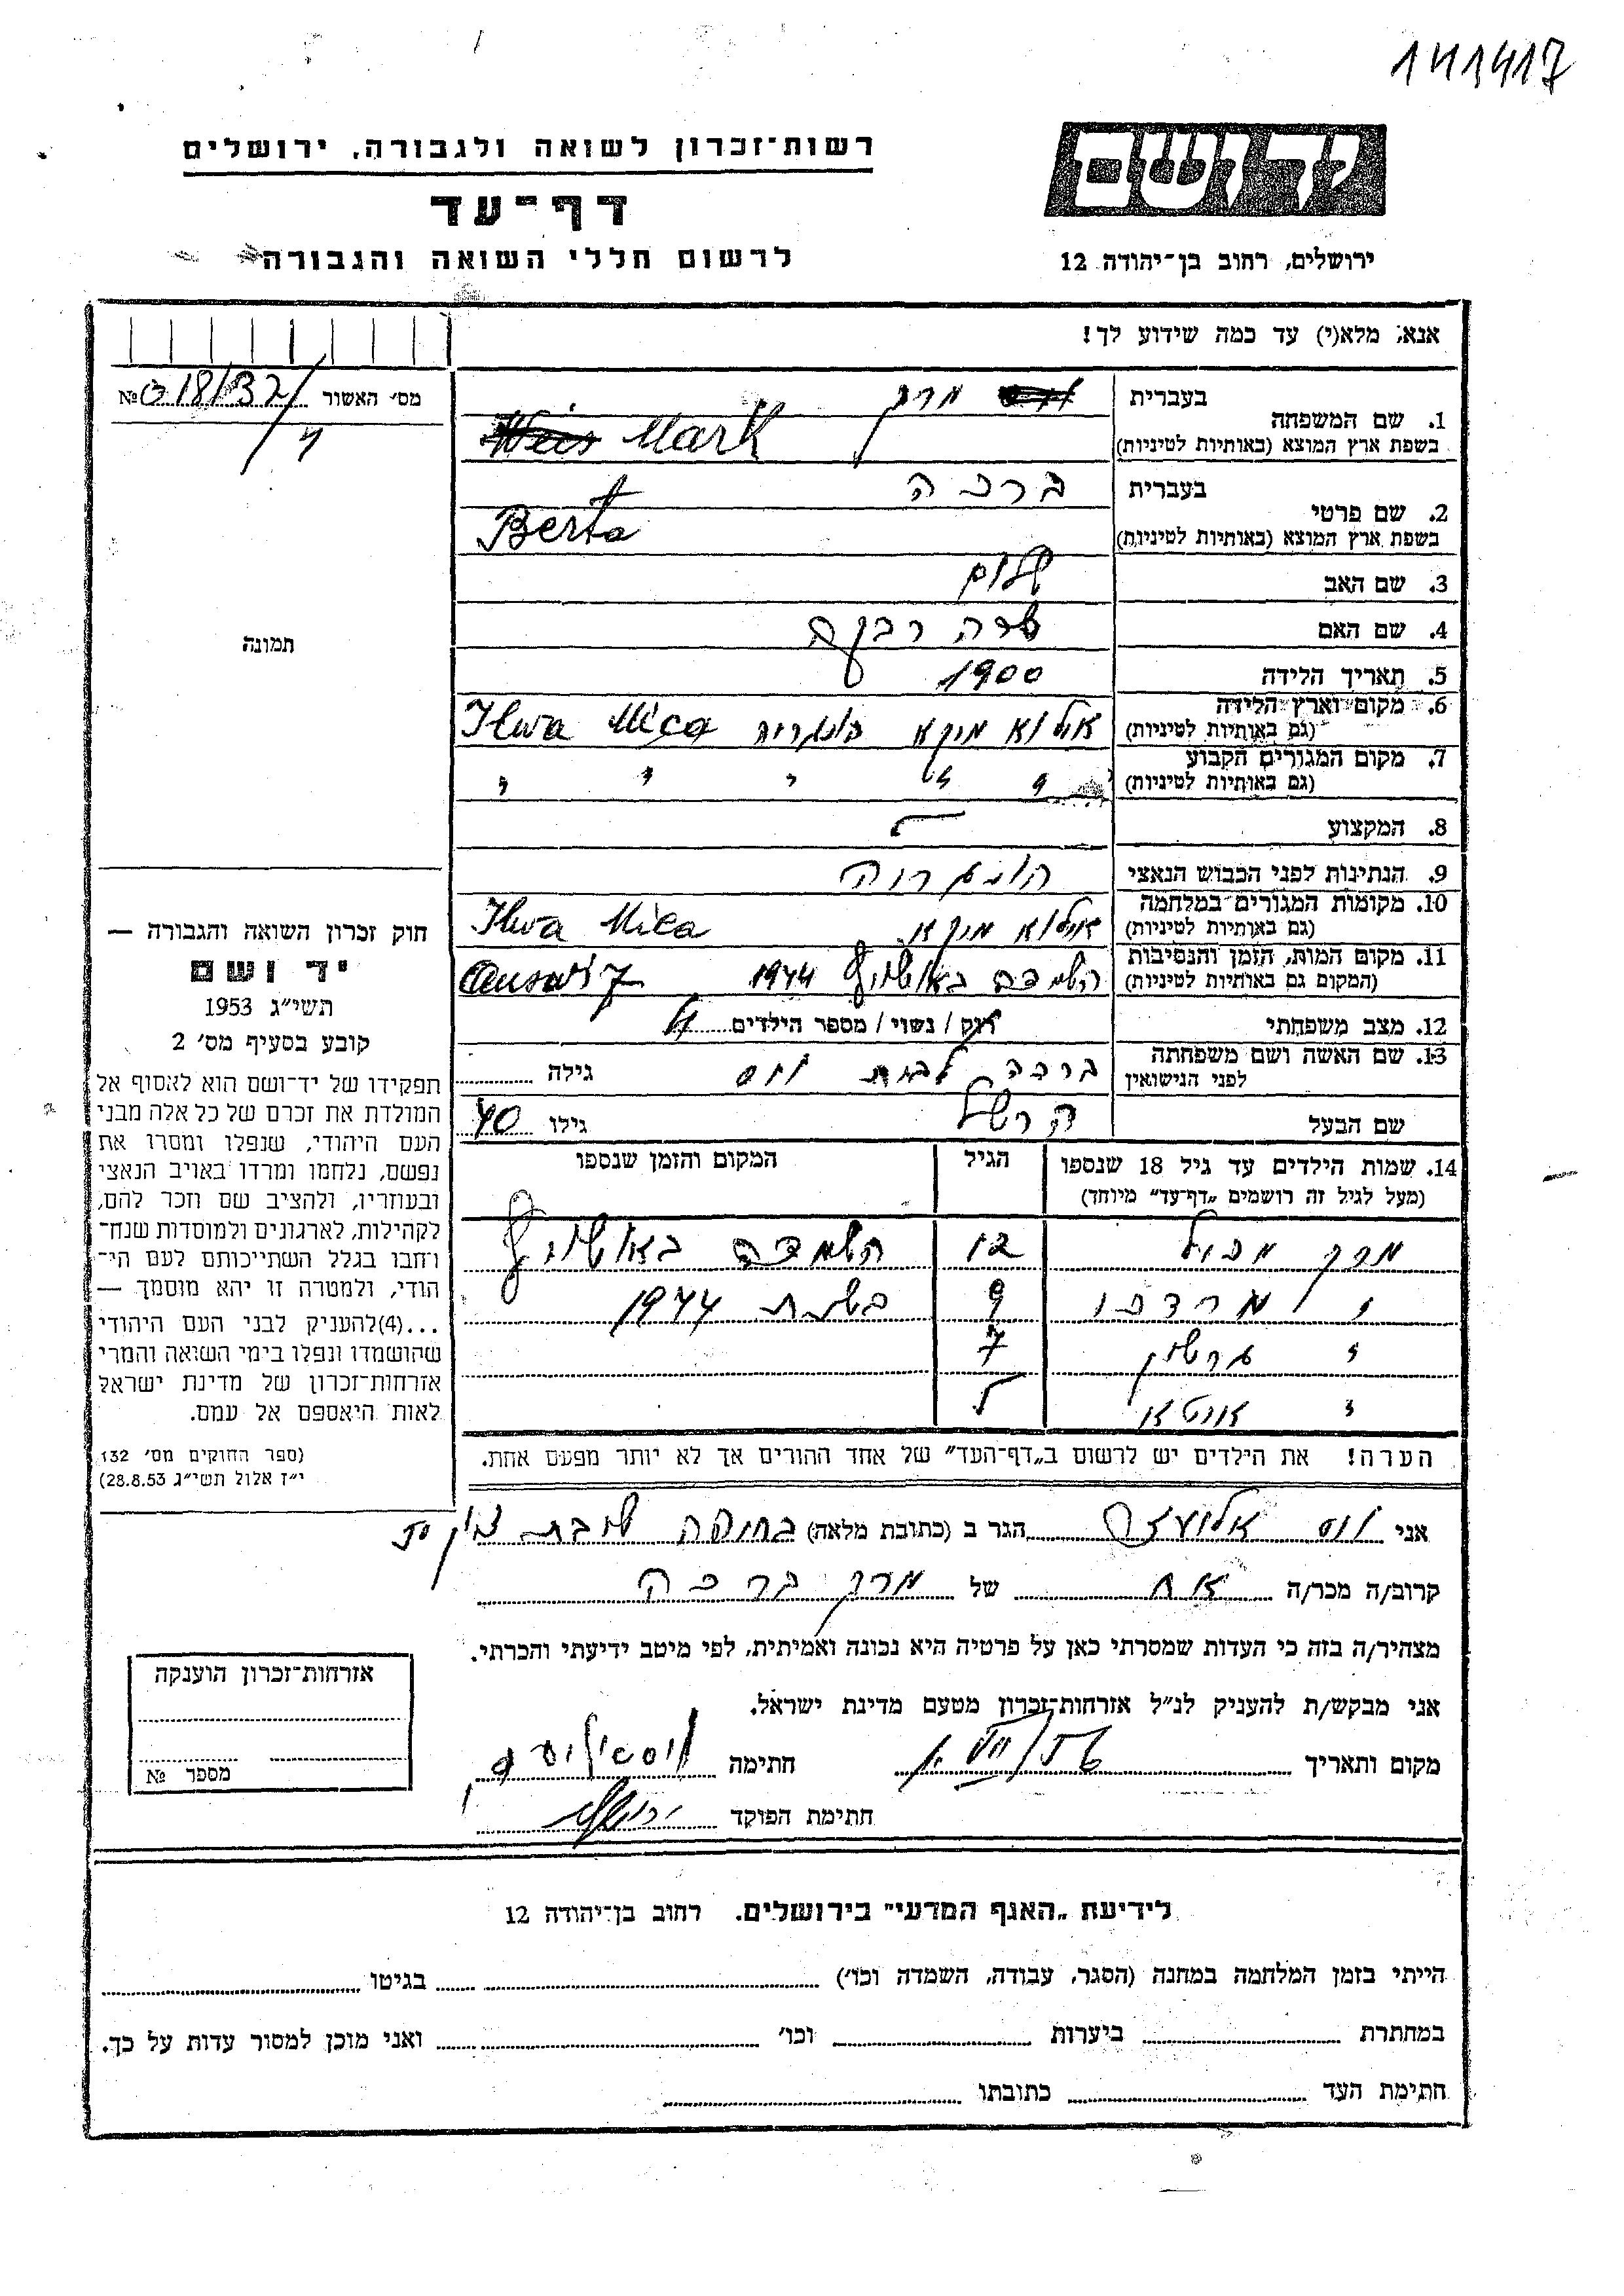 141417
רשות-זכרון לשואה ולגבורה, ירושלים
דף-עד
לרשום חללי השואה והגבורה
יד ושם
ירושלים, רחוב בן-יהודה 12
אנא, מלא(י) עד כמה שידוע לך!
מס' האשור №
1. שם המשפחה בעברית מרק
בשפת ארץ המוצא (באותיות לטיניות) Weis Mark
2. שם פרטי בעברית ברכה
בשפת ארץ המוצא (באותיות לטיניות) Berta
3. שם האב שלום
4. שם האם שרה רבקה
5. תאריך הלידה 1900
6. מקום וארץ הלידה (גם באותיות לטיניות) אילוא מיקא Ilwa Mica
7. מקום המגורים הקבוע (גם באותיות לטיניות) " " " " "
8. המקצוע
9. הנתינות לפני הכבוש הנאצי
10. מקומות המגורים במלחמה (גם באותיות לטיניות) אילוא מיקא Ilwa Mica
11. מקום המות, הזמן והנסיבות (המקום גם באותיות לטיניות) השמדה באושויץ 1944
12. מצב משפחתי רוק / נשוי / מספר הילדים 4
13. שם האשה ושם משפחתה לפני הנישואין ברכה לבית וויס גילה
שם הבעל הרשל גילו 40
14. שמות הילדים עד גיל 18 שנספו (מעל לגיל זה רושמים "דף-עד" מיוחד) הגיל המקום והזמן שנספו
מרק 12 השמדה באושויץ
" מרדכי 9 בשנת 1944
" גרשון 7
"
הערה! את הילדים יש לרשום ב"דף-העד" של אחד ההורים אך לא יותר מפעם אחת.
תמונה
חוק זכרון השואה והגבורה —
יד ושם
תשי"ג 1953
קובע בסעיף מס' 2
תפקידו של יד-ושם הוא לאסוף אל
המולדת את זכרם של כל אלה מבני
העם היהודי, שנפלו ומסרו את
נפשם, נלחמו ומרדו באויב הנאצי
ובעוזריו, ולהציב שם וזכר להם,
לקהילות, לארגונים ולמוסדות שנח-
רחבו בגלל השתייכותם לעם הי-
הודי, ולמטרה זו יהא מוסמך —
...(4)להעניק לבני העם היהודי
שהושמדו ונפלו בימי השואה והמרי
אזרחות-זכרון של מדינת ישראל
לאות היאספם אל עמם.
(ספר החוקים מס' 132
י"ז אלול תשי"ג 28.8.53)
אני וויס אליעזר הגר ב (כתובת מלאה)
קרוב/ה מכר/ה אח של מרק ברכה
מצהיר/ה בזה כי העדות שמסרתי כאן על פרטיה היא נכונה ואמיתית, לפי מיטב ידיעתי והכרתי.
אני מבקש/ת להעניק לנ"ל אזרחות-זכרון מטעם מדינת ישראל.
מקום ותאריך חתימה
חתימת הפוקד
אזרחות-זכרון הוענקה
מספר №
לידיעת "האגף המדעי" בירושלים. רחוב בן-יהודה 12
הייתי בזמן המלחמה במחנה (הסגר, עבודה, השמדה וכו') בגיטו
במחתרת ביערות וכו' ואני מוכן למסור עדות על כך.
חתימת העד כתובתו